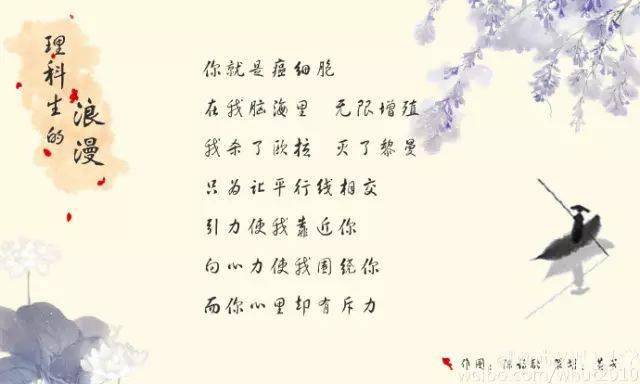 理科生的
浪漫
你就是癌细胞
在我脑海里 无限增殖
我杀了欧拉 灭了黎曼
只为让平行线相交
引力使我靠近你
向心力使我围绕你
而你心里却有斥力
作图：